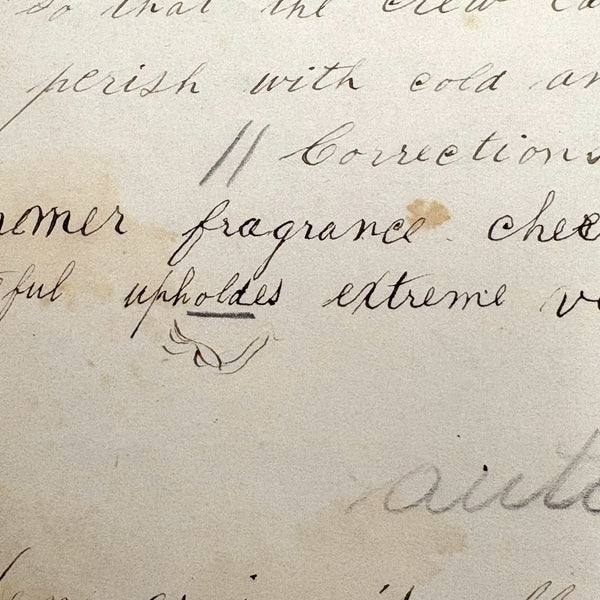 so that the crew
perish with cold
// Corrections
fragrance chee
ful upholdes extreme
auto